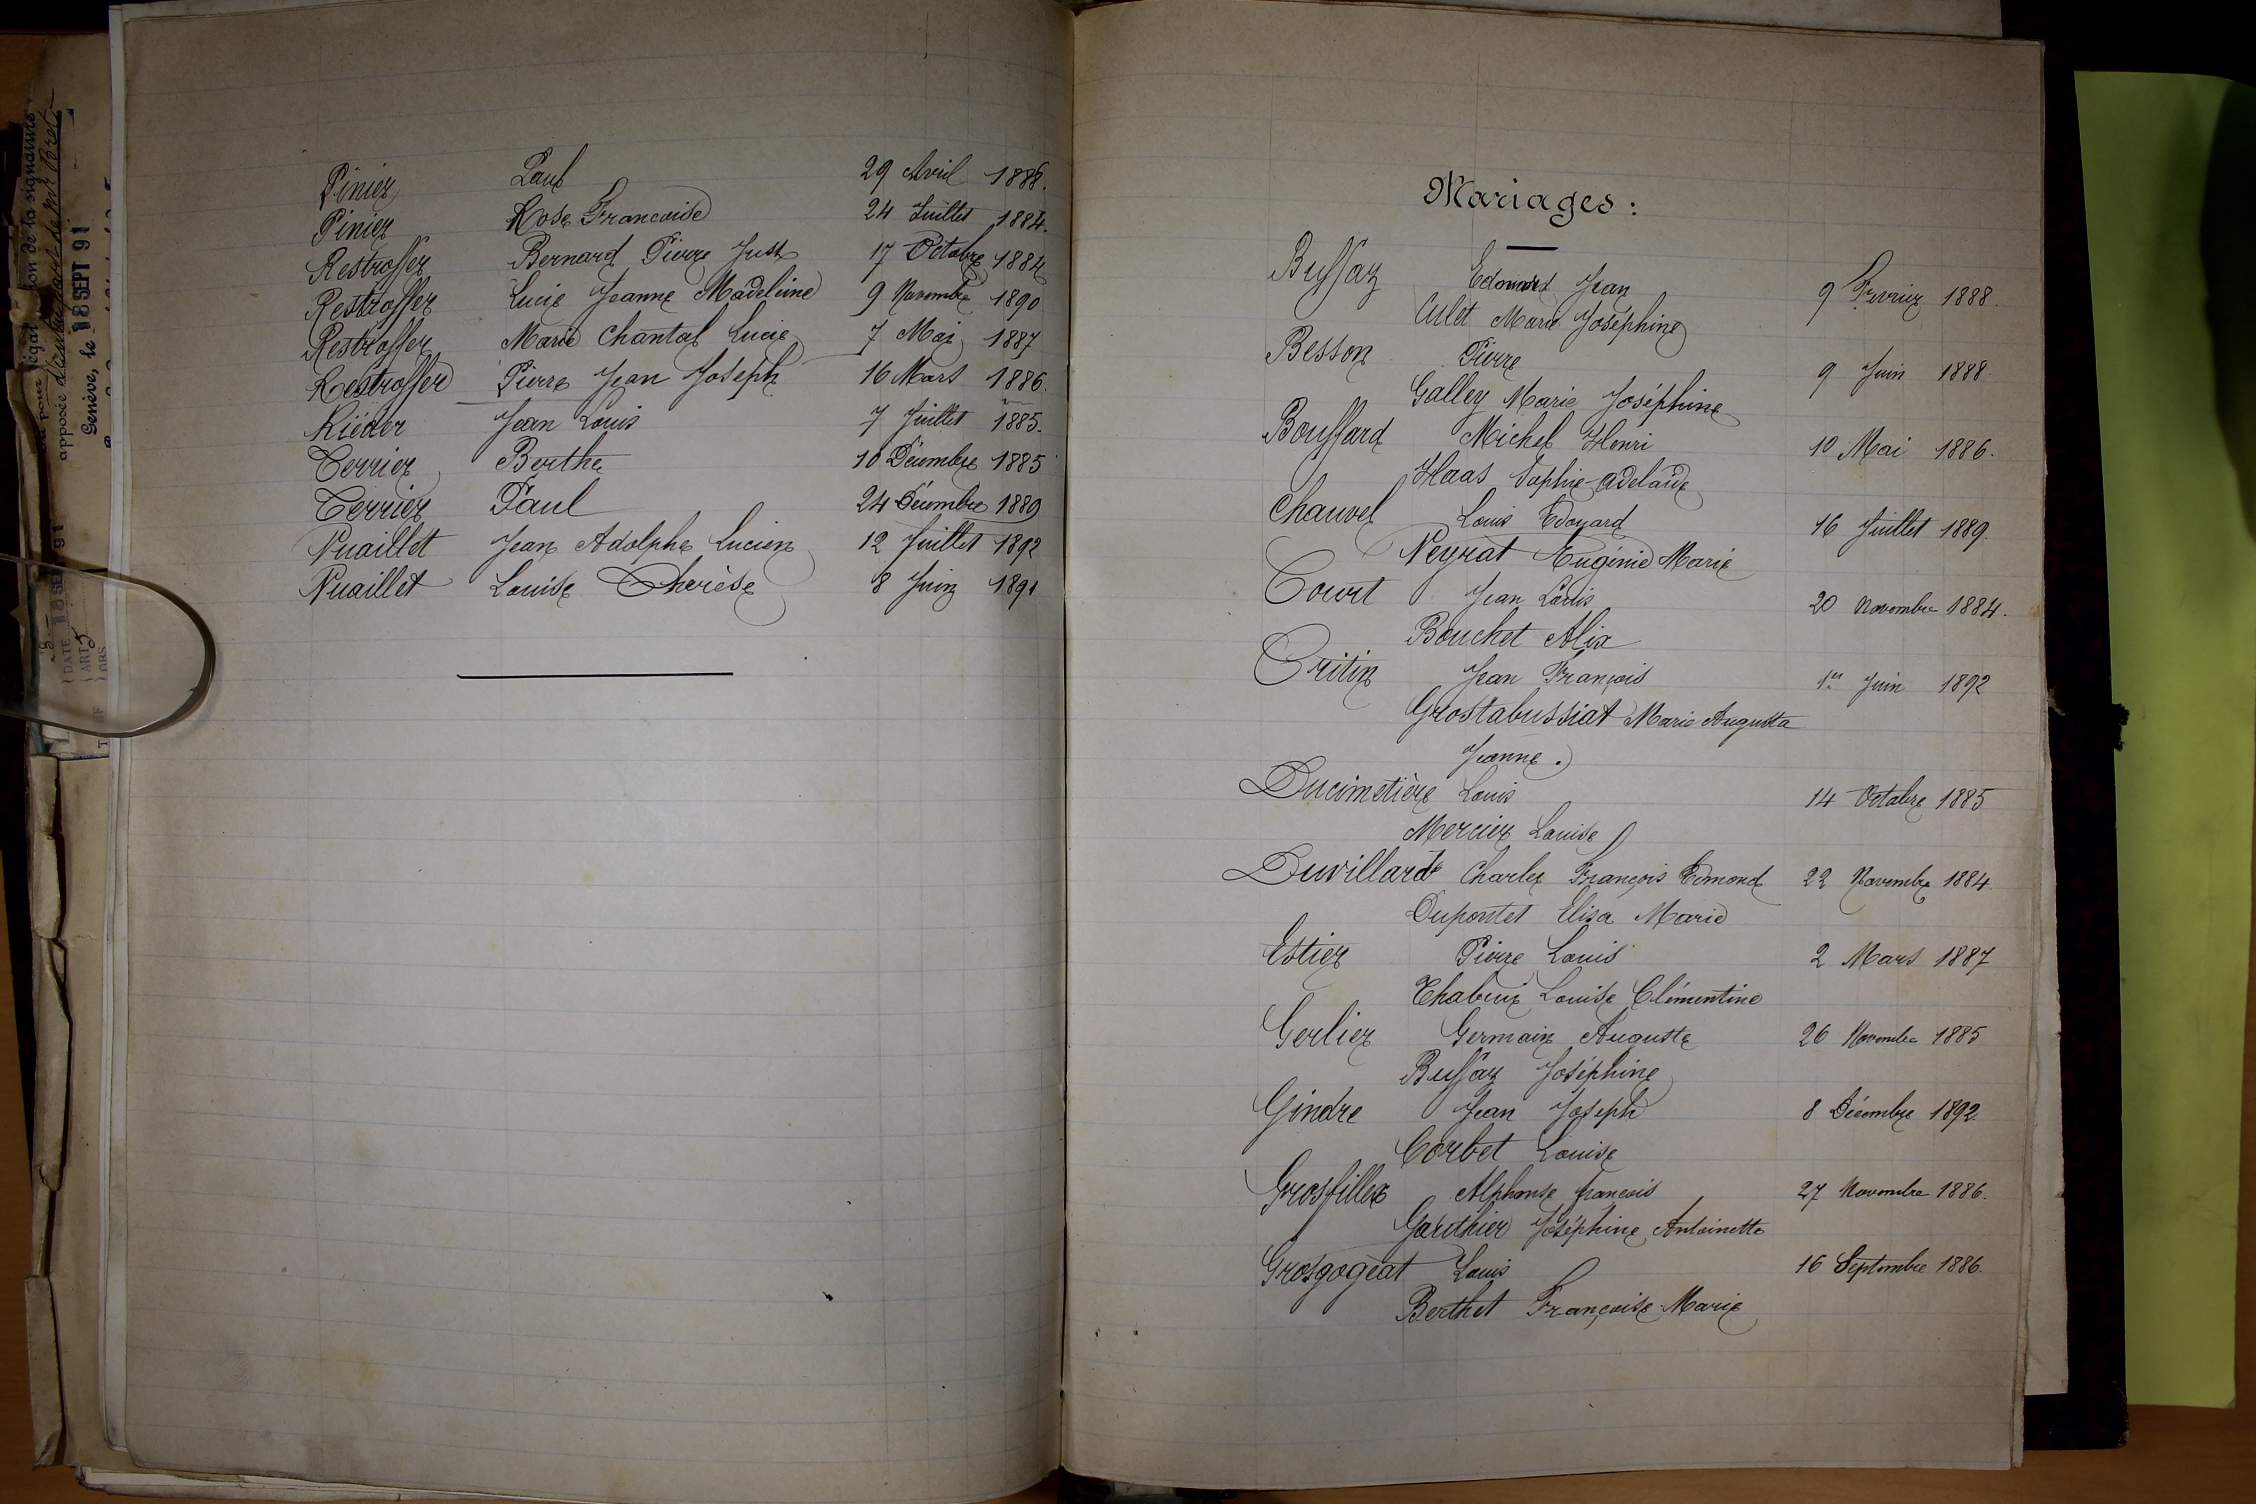 Pinier Paul 29 Avril 1886.
Pinier Rose Francoise 24 Juillet 1884.
Restroffer Bernard Pierre Just 17 Octobre 1884
Restroffer Lucie Jeanne Madeleine 9 Novembre 1890
Restroffer Marie Chantal Lucie 7 Mai 1887
Restroffer Pierre Jean Joseph 16 Mars 1886.
Riéder Jean Louis 7 Juillet 1885.
Terrier Berthe 10 Décembre 1885
Terrier Paul 24 Décembre 1889
Vuaillet Jean Adolphe Lucien 12 Juillet 1892
Vuaillet Louise Thérèse 8 Juin 1891
Mariages :
Buffaz Edouard Jean 9 Fevrier 1888.
Culet Marie Joséphine
Besson Pierre 9 Juin 1888.
Galley Marie Joséphine
Bouffard Michel Henri 10 Mai 1886.
Haas Sophie Adelaïde
Chauvel Louis Edouard 16 Juillet 1889.
Neyrat Eugénie Marie
Court Jean Louis 20 Novembre 1884.
Bouchet Alix
Critin Jean François 1er Juin 1892
Grostabussiat Marie Augusta
Jeanne.
Ducimetière Louis 14 Octobre 1885
Mercier Louise
Duvillard Charles François Edmond 22 Novembre 1884.
Dupontet Elisa Marie
Estier Pierre Louis 2 Mars 1887
Chabrui Louise Clémentine
Gerlier Germain Auguste 26 Novembre 1885
Buffaz Joséphine
Gindre Jean Joseph 8 Décembre 1892.
Corbet Louise
Grosfillex Alphonse françois 27 Novembre 1886.
Gauthier Joséphine Antoinette
Grosgogeat Louis 16 Septembre 1886.
Berthet Françoise Marie
Genève, le 18 SEPT 91